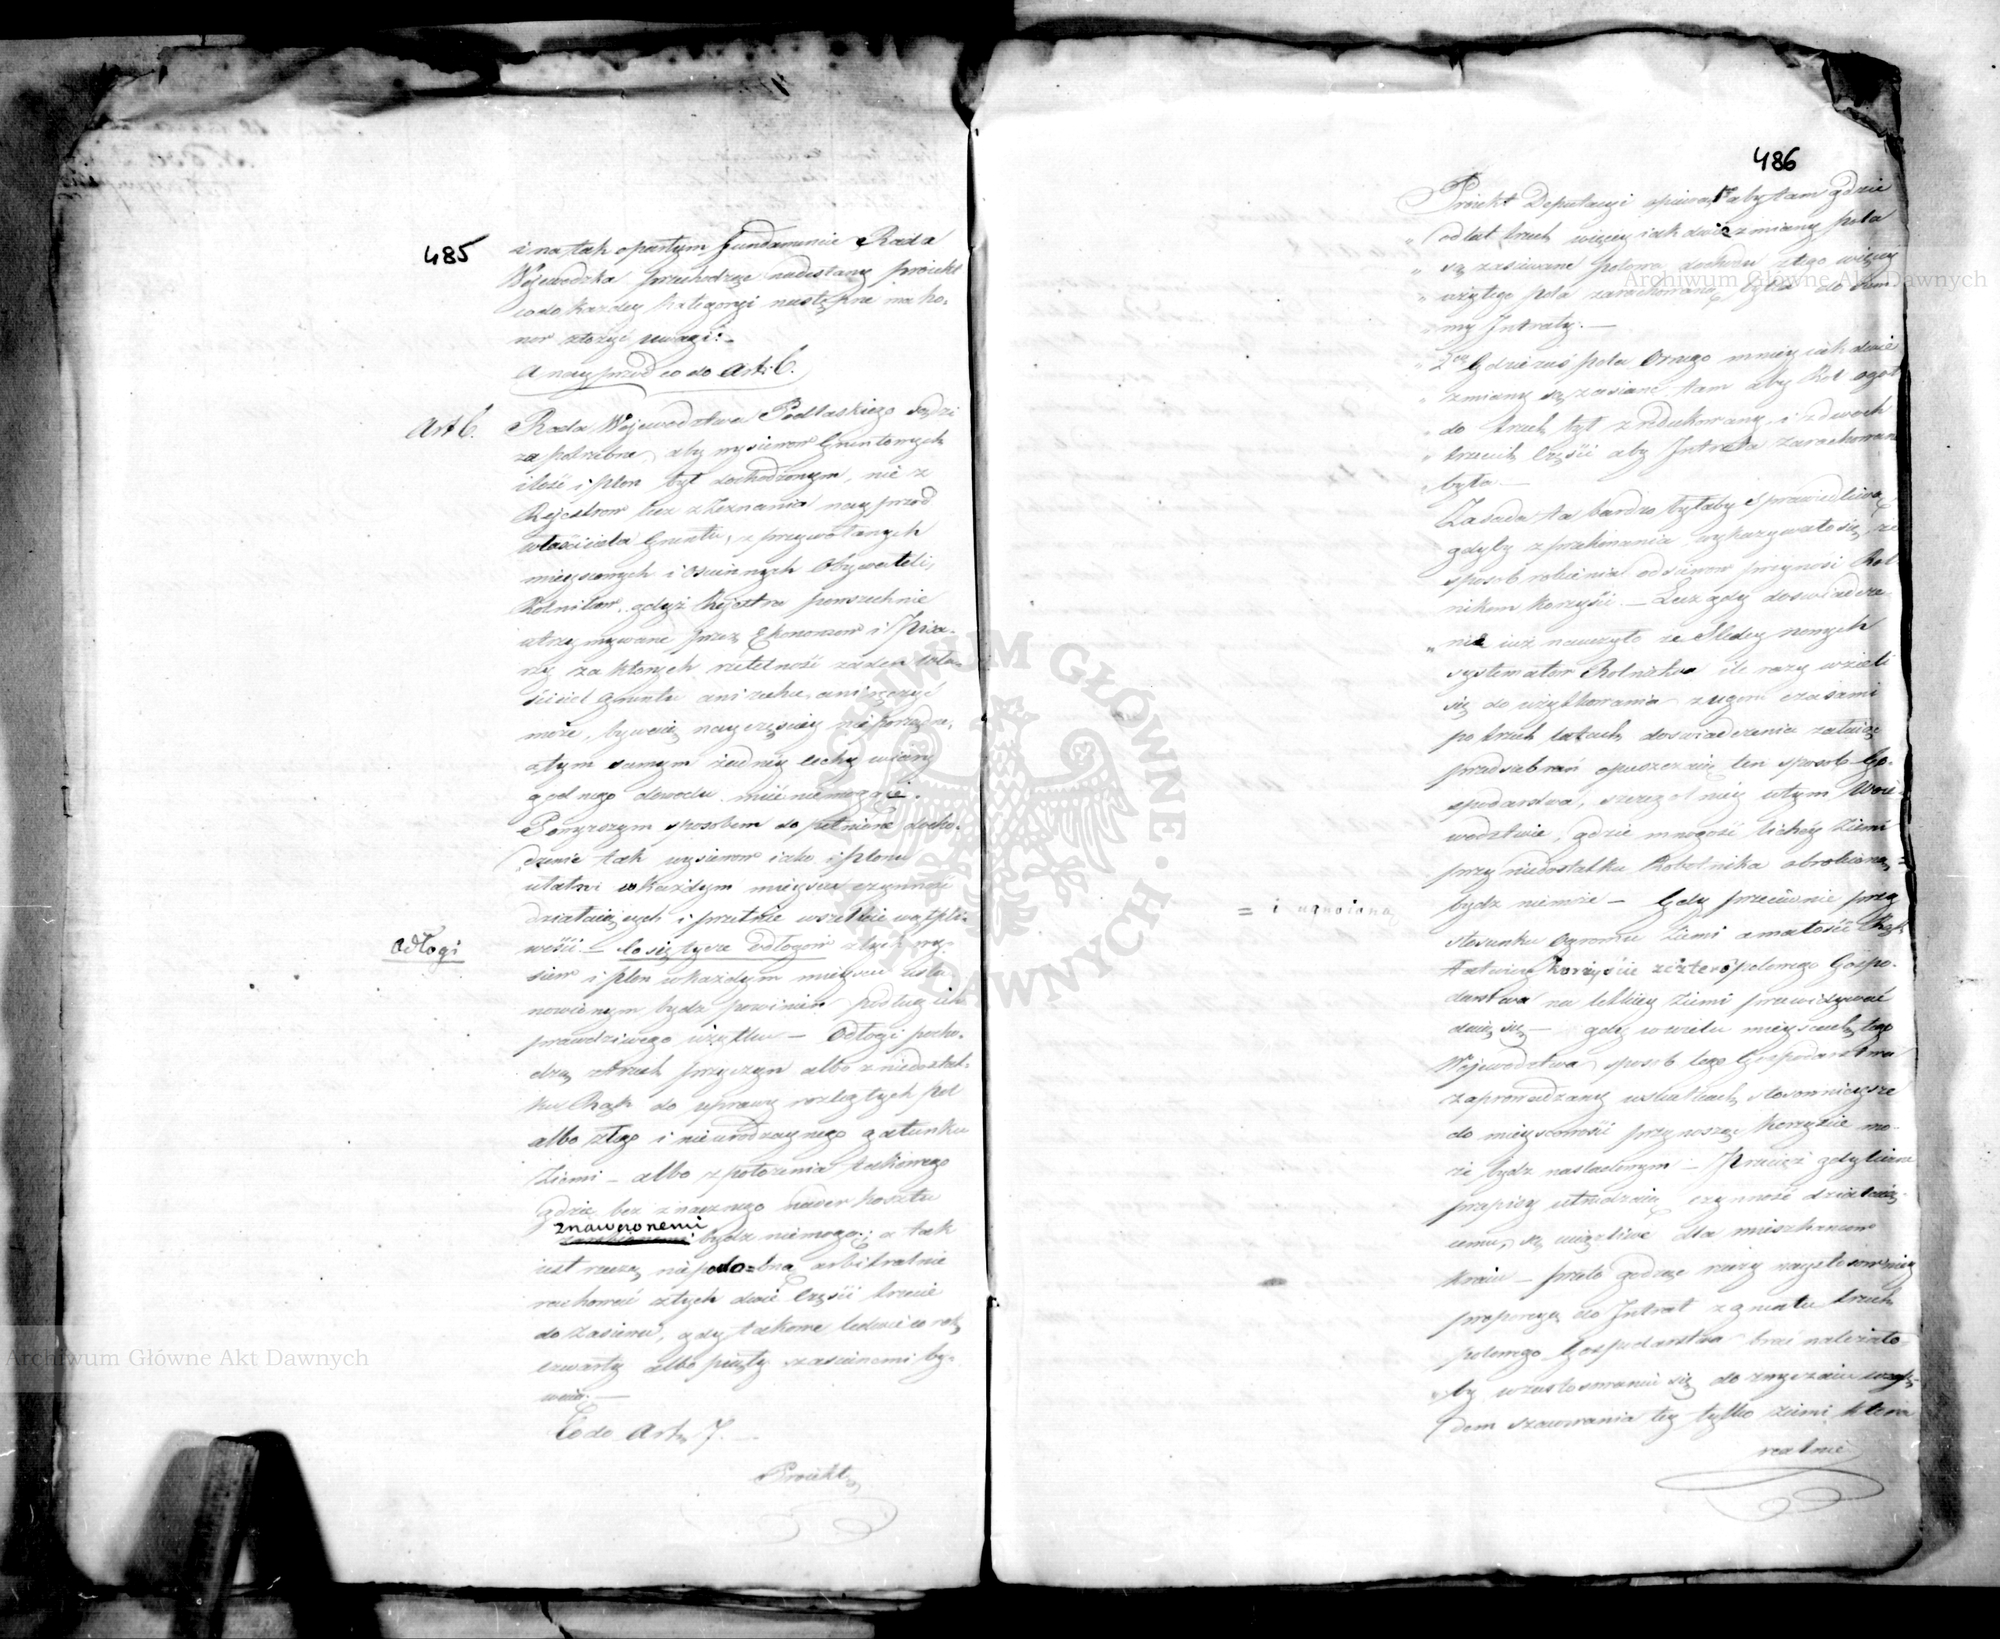 485
i na tak opartym fundamencie Rada
Wojewodzka przechodząc nadesłany proiekt
co do każdey kategoryi następne ma ho-
nor złożyć uwagi:-
A nayprzód co do Art. 6.
Art 6.
Rada Wojewodztwa Podlaskiego sądzi
za potrzebne, aby wysiewow Gruntowych
ilość i plon był dochodzonym, nie z
Rejestrow lecz z zeznania nayprzód
właściciela Gruntu, z przywołanych
mieyscowych i ościennych Obywateli,
Rolnikow, gdyż Rejestra powszechnie
utrzymywane przez Ekonomow i Pisa-
rzy za których rzetelność żaden wła-
ściciel Gruntu ani ręczyć
może, bywaią nayczęściey nieporządne,
a tym samym żadney cechy wiary
godnego dowodu mieć nie mogące.
Powyższym sposobem dopełnione docho-
dzenie tak wysiewow iako i plonu
ułatwi w każdym mieyscu czynność
działaiących i przetnie wszelkie wątpli-
wości. — Co się tycze Odłogów z tych wy-
Odłogi
siew i plon w każdym mieyscu usta-
nowionym bydź powinien podług ich
prawdziwego użytku — Odłogi pocho-
dzą z trzech przyczyn albo z niedostat-
ku Rąk do uprawy rozległych pól
albo złego i nieurodzaynego gatunku
Ziemi — albo z położenia takowego
gdzie bez znacznego nader kosztu
znawozonemi
bydź niemogą; a tak
iest rzeczą niepodo=bną arbitralnie
rachować z tych dwie części trzecie
do zasiewu, gdy takowe ledwie co rok
czwarty albo piąty zasiewanemi by-
waią. —
Co do Art. 7. —
Proiekt
486
Proiekt Deputacyi opiewa, 1o aby tam gdzie
od lat trzech więcey iak dwie zmiany pola
są zasiewane połowa dochodu z tego więcey
użytego pola zarachowaną była do Sum-
my Intraty. —
2o Gdzie zaś pola Ornego mniey iak dwie
zmiany są zasiane tam aby Rol ogół
do trzech był zredukowany, i z dwoch
trzecich Części aby Intrata zarachowana
była. —
Zasada ta bardzo byłaby sprawiedliwą,
gdyby z przekonania wykazywało się, że
sposob robienia odsiewow przynosi Rol-
nikom korzyści. — Lecz gdy doświadcze-
nie iuż nauczyło że Sledcy nowych
systematow Rolnictwa ile razy wzieli
się do użytkowania z ugoru czasami
po trzech latach doswiadczenia
opuszczaią ten sposob Go-
spodarstwa, szczególniey w tym Woie-
wodztwie, gdzie mnogość lichey Ziemi
przy niedostatku Robotnika obrobioną =
= i ugnoioną
bydź niemoże — Gdy przeciwnie przy
stosunku ogromu Ziemi a małości Rąk
łatwiey korzyście zczteropolowego Gospo-
darstwa na lekkiey Ziemi przewidywać
daią się — gdy w wielu mieyscach tego
Wojewodztwa sposob tego Gospodarstwa
zaprowadzany w skutkach stosownieysze
do mieyscowości przynosząc korzyście mo-
że bydź nasladowanym — Przecież gdy liczne
przepisy utrudzaią czynność działaią-
cemu, są uciążliwe dla mieszkancow
Kraiu — przeto godząc rzeczy naystosownieyszą
proporcyą do Intrat z gruntu trzech
polowego Gospodarstwa brać należało-
by w zastosowaniu się do zwyczaiu wzglę-
dem szacowania tey tylko ziemi która
realnie